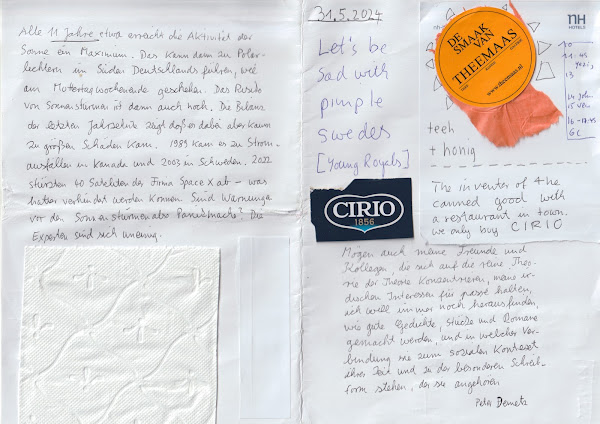 Alle 11 Jahre etwa erreicht die Aktivität der
Sonne ein Maximum. Das kann dann zu Polar-
lichtern im Süden Deutschlands führen, wie
am Muttertagwochenende geschehen. Das Risiko
von Sonnenstürmen ist dann auch hoch. Die Bilanz
der letzten Jahrzehnte zeigt daß es dabei aber kaum
zu großen Schäden kam. 1989 kam es zu Strom-
ausfällen in Kanada und 2003 in Schweden. 2022
stürzten 40 Satelliten der Firma Space X ab – was
hätte verhindert werden können. Sind Warnungen
vor den Sonnenstürmen also Panikmache? Die
Experten sind sich uneinig.
31.5.2024
Let's be
sad with
pimple
swedes
[Young Royals]
DE
SMAAK
VAN
THEEMAAS
www.theemaas.nl
nh
HOTELS
10
11.45
13
16-18.45
GL
teeh
+ honig
CIRIO
1856
The inventor of the
canned good with
a restaurant in town.
we only buy CIRIO
Mögen auch meine Freunde und
Kollegen, die sich auf die reine Theo-
rie der Theorie konzentrieren, meine ir-
dischen Interessen für passé halten,
ich will immer noch herausfinden,
wie gute Gedichte, Stücke und Romane
gemacht werden, und in welcher Ver-
bindung sie zum sozialen Kontext
ihrer Zeit und zu der besonderen Schreib-
form stehen, der sie angehören
Peter Demetz